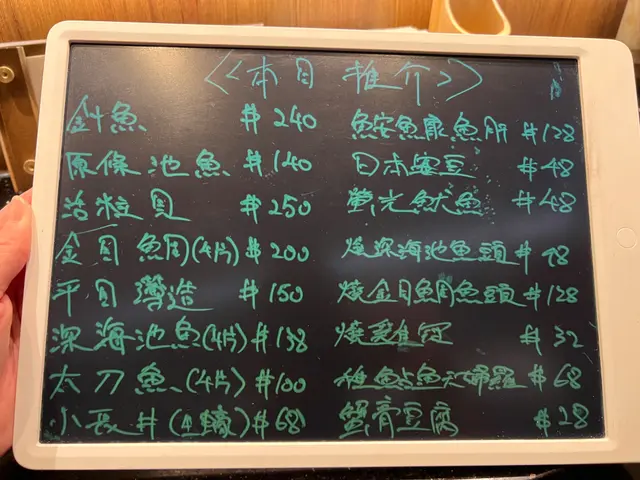 《本日推介》
針魚 $240
原條池魚 $140
活粒貝 $250
金目鯛(4片) $200
平目薄造 $150
深海池魚(4片) $138
太刀魚(4片) $100
小長井 $68
鮟鱇魚肝 $128
日本 豆 $48
螢光魷魚 $48
燒深海池魚頭 $98
燒金目鯛魚頭 $128
燒雞冠 $32
稚鮎魚天婦羅 $68
蟹膏豆腐 $28